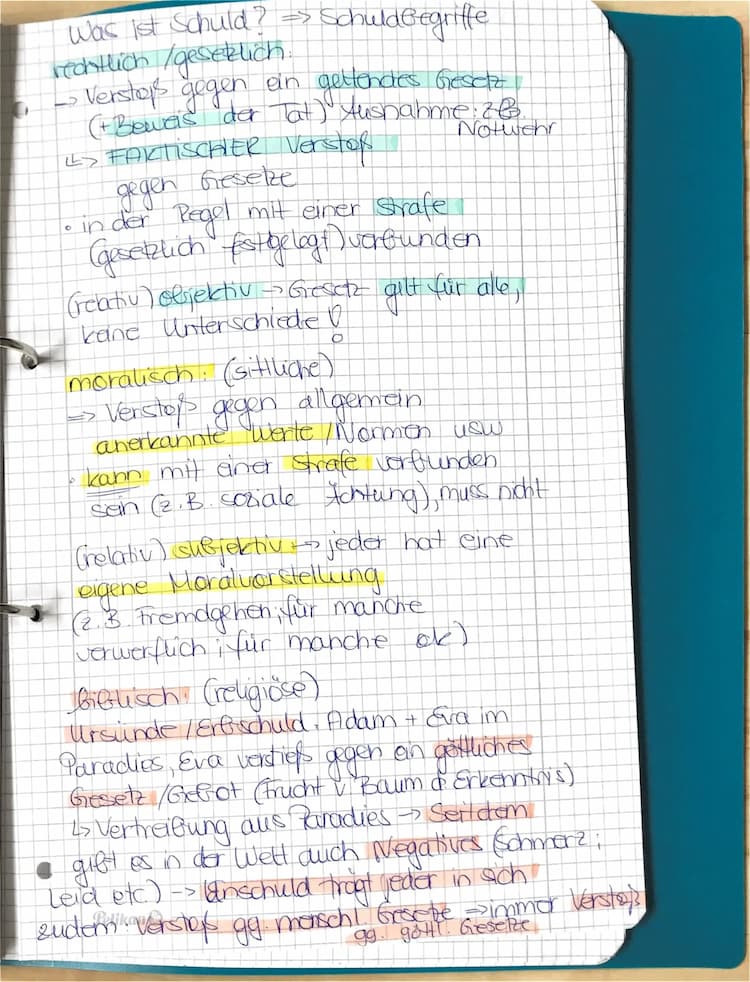 Was ist Schuld? => Schuldbegriffe
rechtlich/gesetzlich:
-> Verstoß gegen ein geltendes Gesetz
(+Beweis der Tat) Ausnahme: z.B.
Notwehr
↳> FAKTISCHER Verstoß
gegen Gesetze
• in der Regel mit einer Strafe
(gesetzlich festgelegt) verbunden
(relativ) objektiv -> Gesetz gilt für alle,
keine Unterschiede!
moralisch: (sittliche)
=> Verstoß gegen allgemein
anerkannte Werte/Normen usw
• kann mit einer Strafe verbunden
sein (z.B. soziale Ächtung), muss nicht
(relativ) subjektiv -> jeder hat eine
eigene Moralvorstellung
(z.B. Fremdgehen; für manche
verwerflich; für manche ok)
biblisch: (religiöse)
Ursünde/Erbschuld: Adam + Eva im
Paradies, Eva verstieß gegen ein göttliches
Gesetz/Gebot (Frucht v. Baum d. Erkenntnis)
↳ Vertreibung aus Paradies -> Seitdem
gibt es in der Welt auch Negatives (Schmerz;
Leid etc.) -> Urschuld trägt jeder in sich
zudem: Verstoß gg. menschl. Gesetze => immer Verstoß
gg. göttl. Gesetze
Pelikan